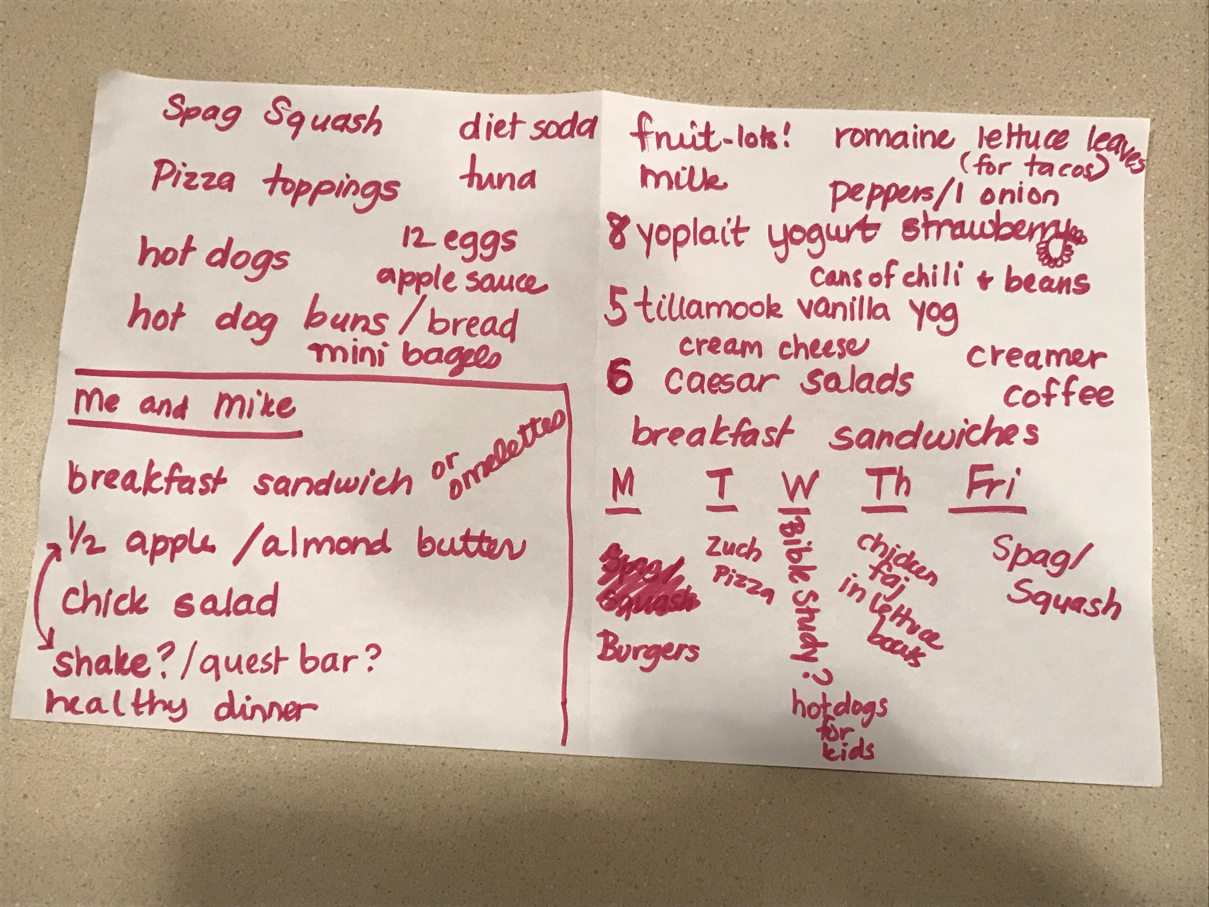 Spag Squash
diet soda
Pizza toppings
tuna
hot dogs
12 eggs
apple sauce
hot dog buns / bread
mini bagels
Me and Mike
breakfast sandwich or omelettes
1/2 apple / almond butter
chick salad
shake? / quest bar?
healthy dinner
fruit-lots!
romaine lettuce leaves
(for tacos)
milk
peppers/1 onion
8 yoplait yogurt strawberry
cans of chili + beans
5 tillamook vanilla yog
cream cheese
creamer
6 caesar salads
coffee
breakfast sandwiches
M T W Th Fri
Spag/
Squash
Burgers
Zuch
Pizza
Bible Study?
hotdogs
for
kids
chicken
faj
in lettuce
boats
Spag/
Squash